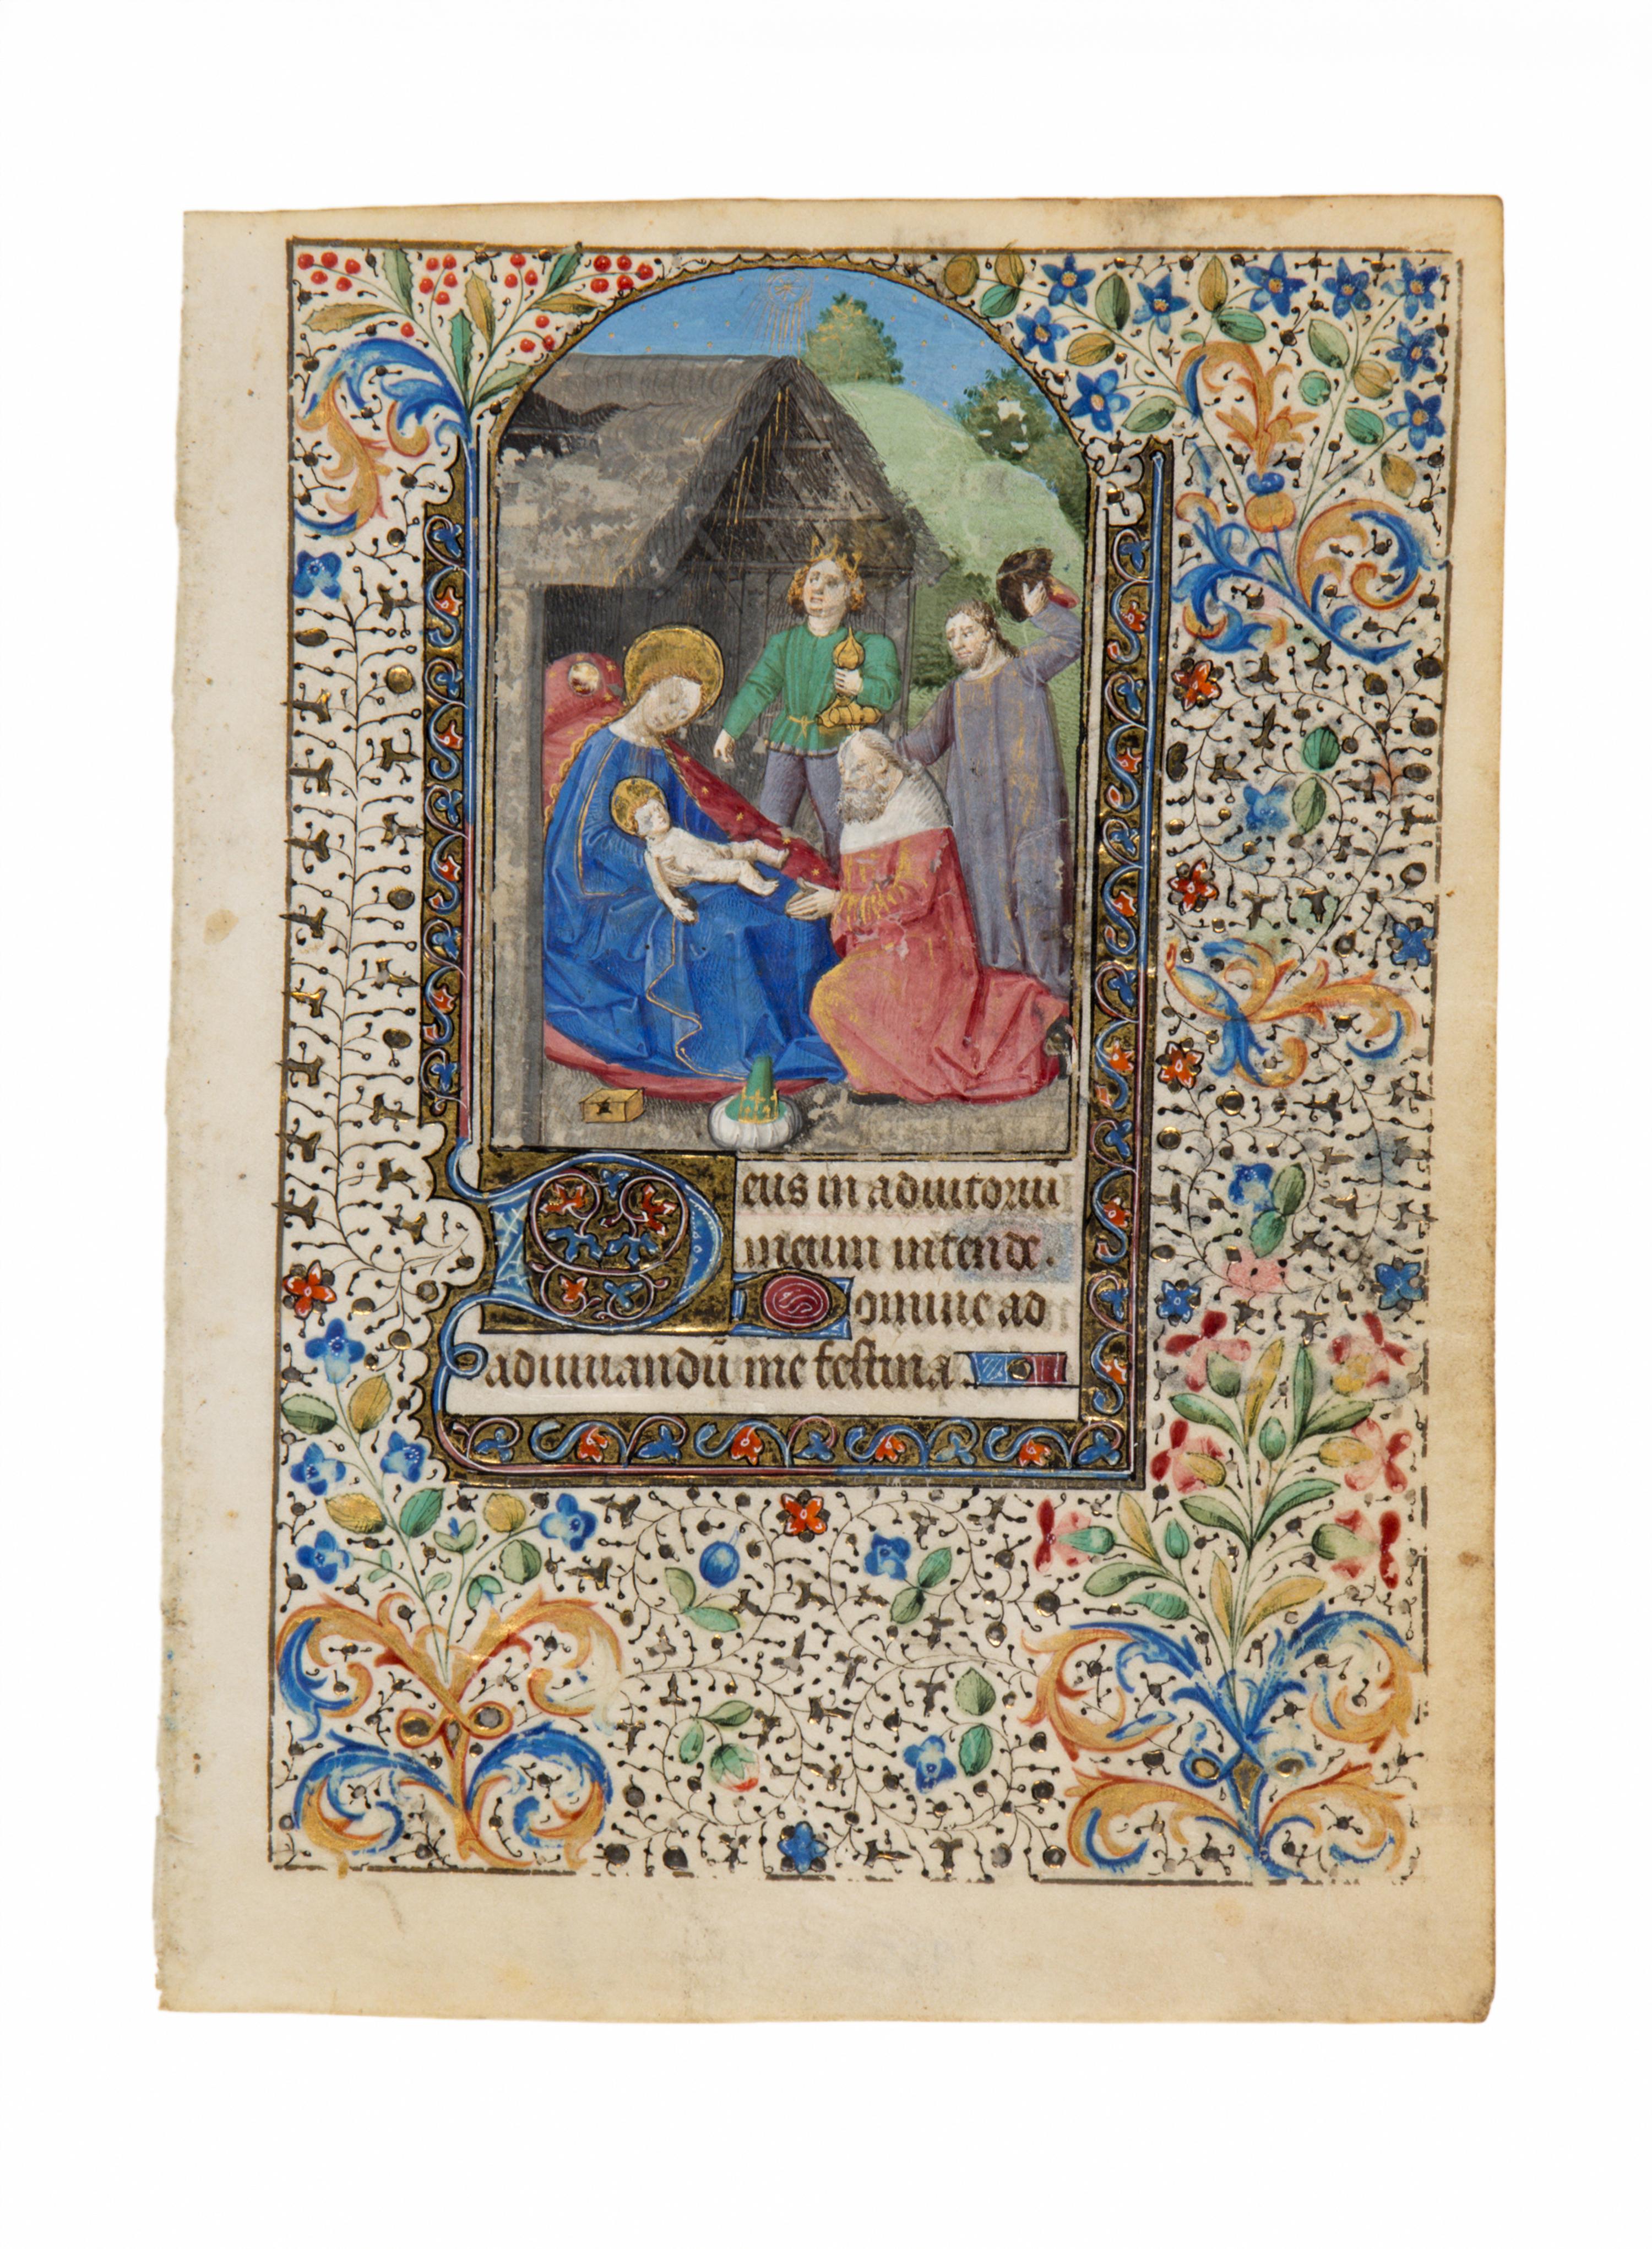 Deus in adiutoriũ
meum intende.
Domine ad
adiuuandũ me festina.